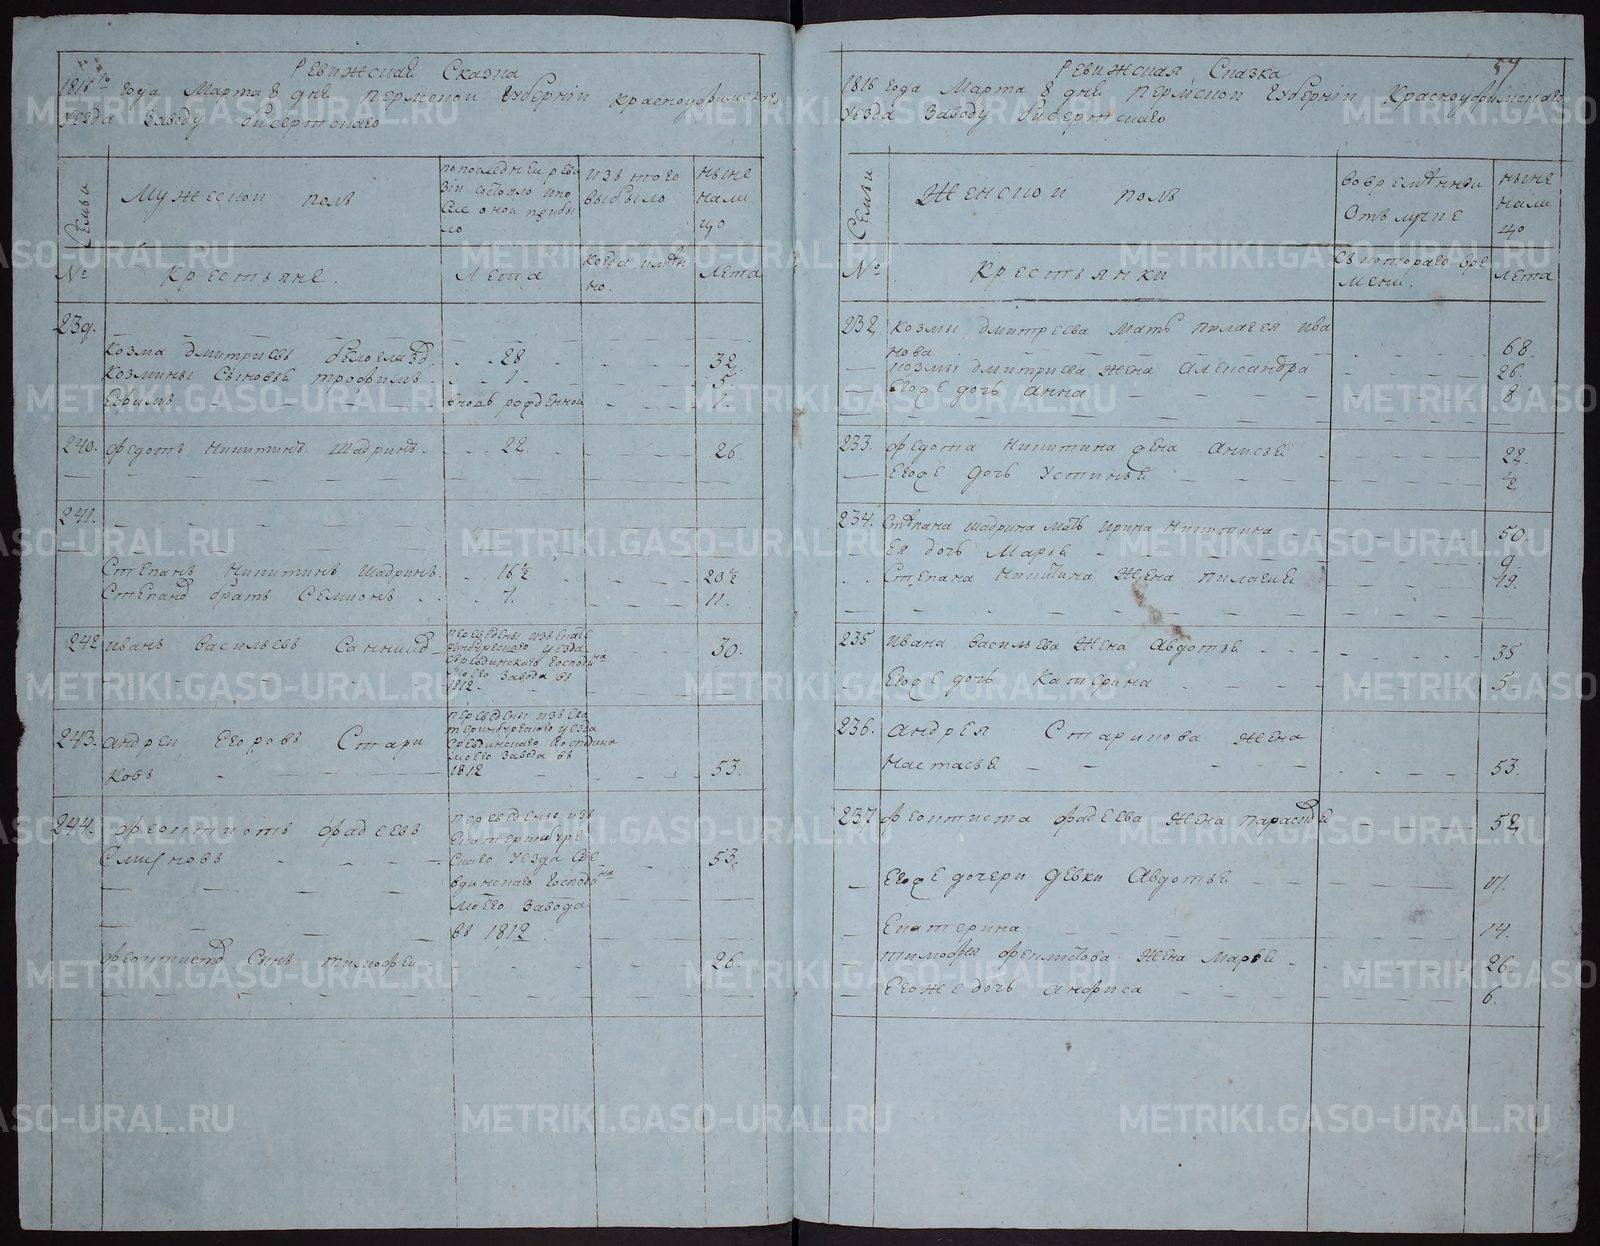 Ревижская Сказка
1816го года Марта 8 дня Пермской Губернiи Красноуфимскаго
уезда Заводу бисертскаго
Семьи
Мужескои полъ
по последней реви
зiи состояло ипо
сле оной прибы
ло
изъ того
выбыло
ныне
нали
цо
№
Крестьяне.
Лета
когда имян
но.
лета
239.
Козма дмитриевъ белоглазъ 28 32
Козмины Сыновья трофимъ 1. 5.
Ефимъ вновь рожденной 1.
240. Федотъ Никитинъ Шадринъ 22. 26.
241.
Степанъ Никитинъ Шадринъ. 16½ 20½
Степана братъ Семионъ 7. 11.
242 Иванъ васильевъ Санниковъ 30.
переведены изъ екате
ринбургскаго уезда
Сергинскаго Господина
моего Завода въ
1812.
243. Андреи Егоровъ Стари
ковъ 53.
переведены изъ ека
теринбургскаго уезда
Господина
моего Завода въ
1812
244. Феоктистъ Фадеевъ
Смирновъ 53.
переведены изъ
екатеринбург
скаго уезда Се
Господина
моего Завода
въ 1812
Феоктиста Сынъ тимофеи 26.
59
Ревижская Сказка
1816 года Марта 8 дня Пермской Губернiи Красноуфимскаго
уезда Заводу бисертскаго
Семьи
Женскои полъ
во временнои
Отълучке
ныне
нали
цо
№
Крестьянки
съ котораго вре
мени.
лета
232 Козмы дмитреева мать пилагея ива
нова 68.
Козмы дмитриева жена Александра 26.
Егоже дочь анна 8
233. Федота Никитина жена анисья 22.
Егоже дочь Устинья ½
234. Степана Шадрина мать Ирина Никитина 50.
Ея дочь Марья 9.
Степана Никитина жена пилагия 19.
235 Ивана васильева жена Авдотья 35
Егоже дочь Катерина 5
236. Андрея Старикова жена
Настасья 53.
237 Феоктиста Фадеева жена парасковья 52
Егоже дочери девки Авдотья 17.
Екатерина 14.
тимофея Феоктистова жена Марья 26.
Егоже дочь анфиса 6.
METRIKI.GASO-URAL.RU